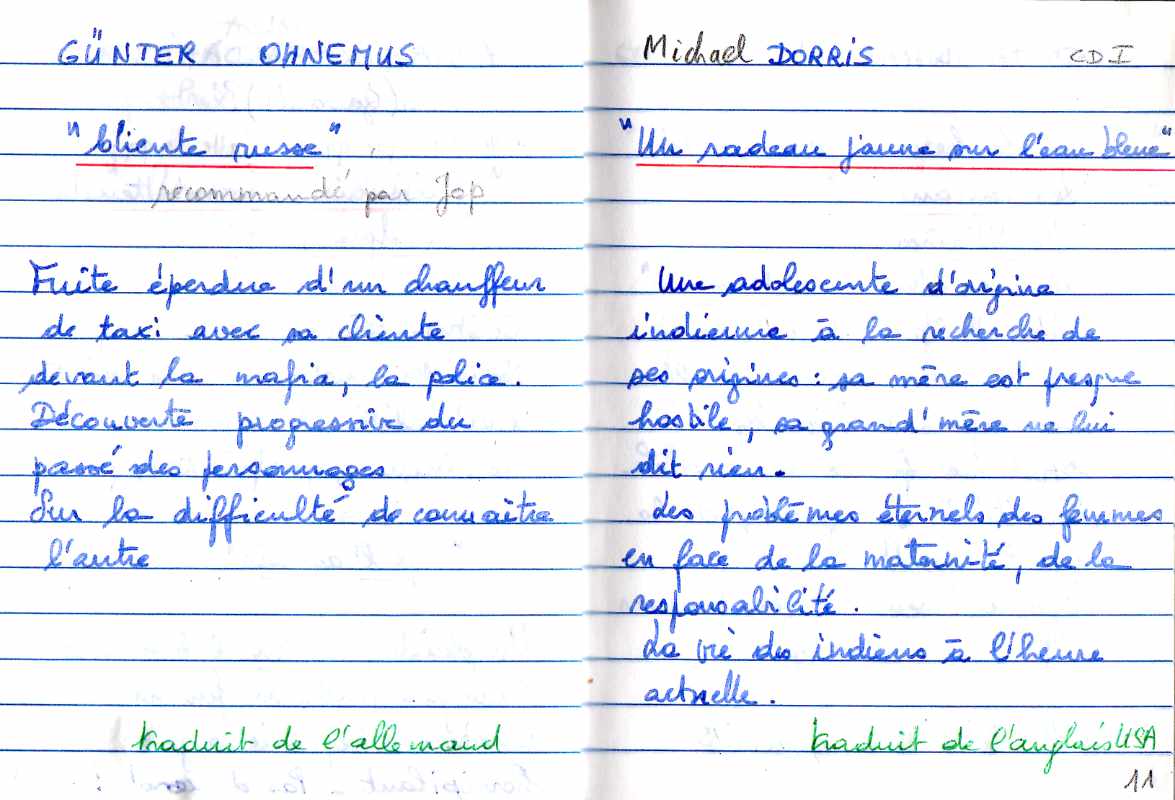 GÜNTER OHNEMUS
"Cliente russe"
recommandé par Jop
Fuite éperdue d'un chauffeur
de taxi avec sa cliente
devant la mafia, la police.
Découverte progressive du
passé des personnages
Sur la difficulté de connaître
l'autre
traduit de l'allemand
Michael DORRIS CDI
"Un radeau jaune sur l'eau bleue"
Une adolescente d'origine
indienne à la recherche de
ses origines : sa mère est presque
hostile, sa grand'mère ne lui
dit rien.
Les problèmes éternels des femmes
en face de la maternité, de la
responsabilité.
La vie des indiens à l'heure
actuelle.
traduit de l'anglais USA
11